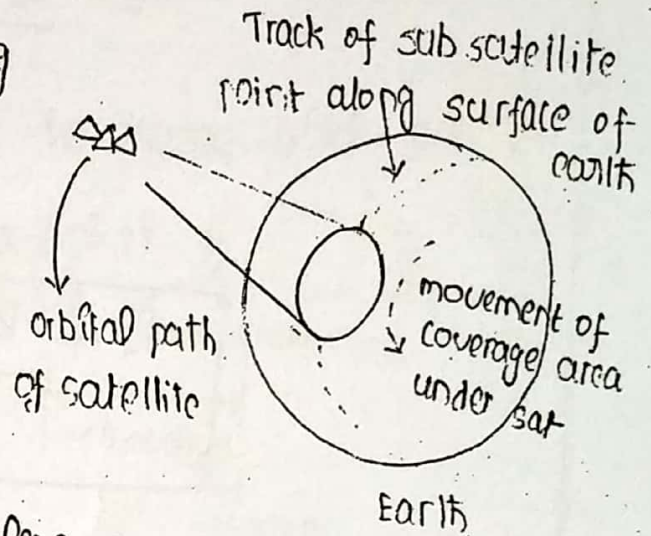 Track of sub satellite
point along surface of
earth
orbital path
of satellite
movement of
coverage area
under sat
Earth